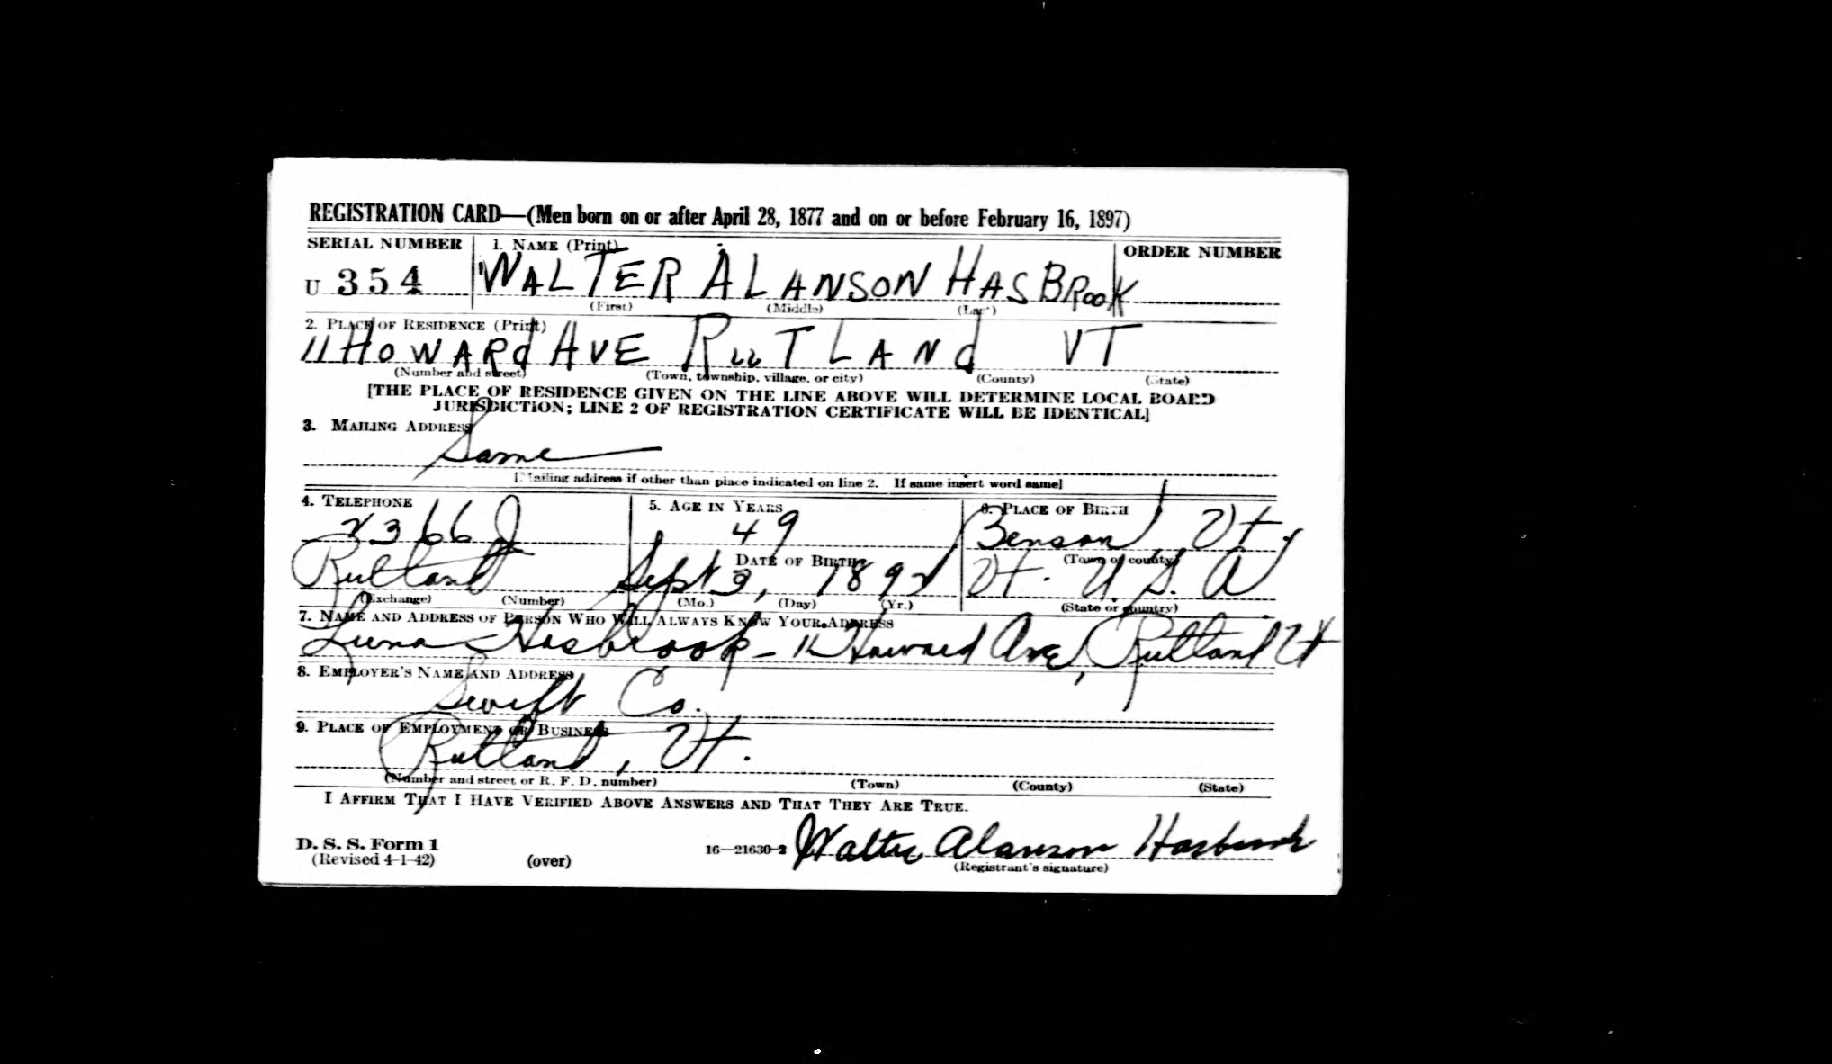 REGISTRATION CARD—(Men born on or after April 28, 1877 and on or before February 16, 1897)
SERIAL NUMBER 1. NAME (Print) ORDER NUMBER
U 354 WALTER ALANSON HASBROOK
(First) (Middle) (Last)
2. PLACE OF RESIDENCE (Print)
11 HOWARD AVE RUTLAND VT
(Number and street) (Town, township, village, or city) (County) (State)
[THE PLACE OF RESIDENCE GIVEN ON THE LINE ABOVE WILL DETERMINE LOCAL BOARD
JURISDICTION; LINE 2 OF REGISTRATION CERTIFICATE WILL BE IDENTICAL]
3. MAILING ADDRESS
Same
[Mailing address if other than place indicated on line 2. If same insert word same]
4. TELEPHONE 5. AGE IN YEARS 6. PLACE OF BIRTH
2366 J 49 Benson Vt.
DATE OF BIRTH (Town or county)
Rutland Sept 3, 1892 Vt. U.S.A
(Exchange) (Number) (Mo.) (Day) (Yr.) (State or country)
7. NAME AND ADDRESS OF PERSON WHO WILL ALWAYS KNOW YOUR ADDRESS
Hasbrook - 11 Howard Ave, Rutland Vt
8. EMPLOYER'S NAME AND ADDRESS
Swift Co.
9. PLACE OF EMPLOYMENT OR BUSINESS
Rutland, Vt.
(Number and street or R. F. D. number) (Town) (County) (State)
I AFFIRM THAT I HAVE VERIFIED ABOVE ANSWERS AND THAT THEY ARE TRUE.
D. S. S. Form 1
(Revised 4-1-42) (over) 16—21630-2 Walter Alanson Hasbrook
(Registrant's signature)